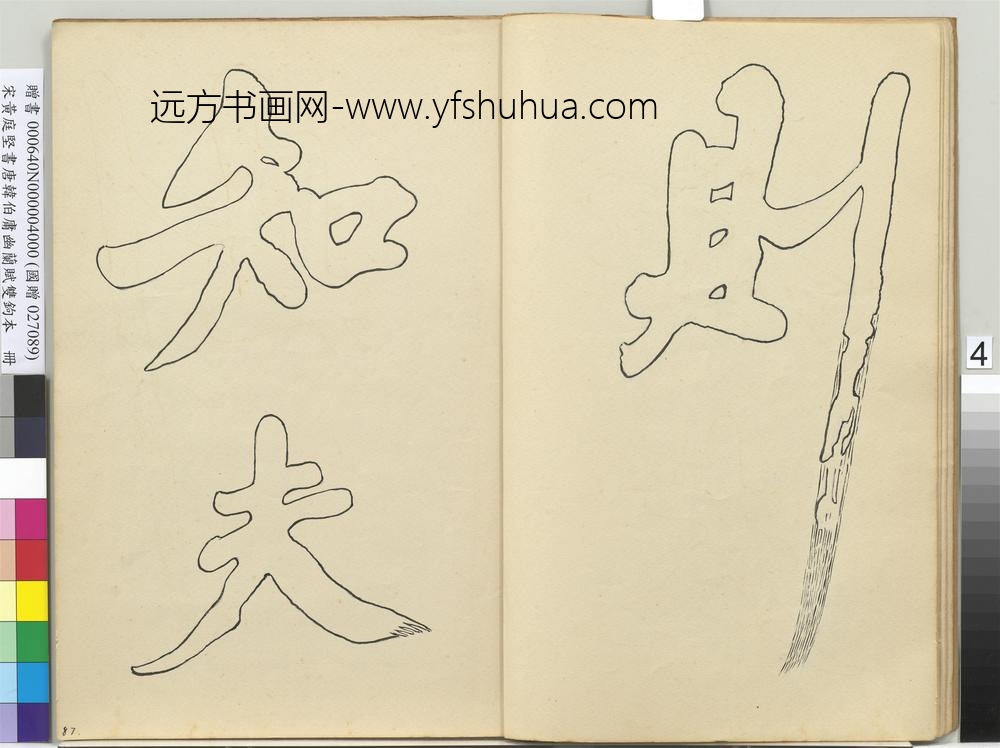 則
知
夫
远方书画网-www.yfshuhua.com
贈書 000640N000004000 (國贈 027089)
宋黃庭堅書唐韓伯庸幽蘭賦雙鈎本 冊
4
87.